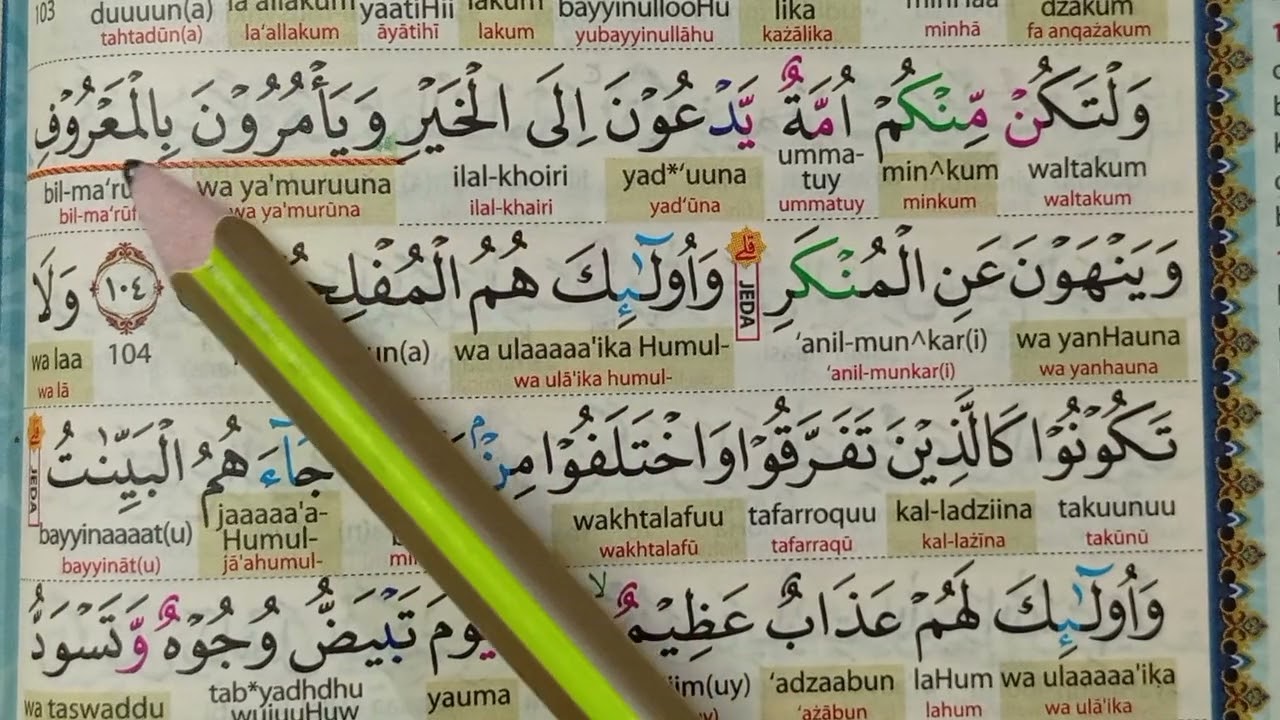 dzakum minHaa lika bayyinullooHu lakum yaatiHii la'allakum duuuun(a) 103
fa anqażakum minhā każālika yubayyinullāhu lakum āyātihī la'allakum tahtadūn(a)
وَلْتَكُنْ مِّنْكُمْ اُمَّةٌ يَّدْعُوْنَ اِلَى الْخَيْرِ وَيَأْمُرُوْنَ بِالْمَعْرُوْفِ
waltakum min^kum umma-tuy yad*‘uuna ilal-khoiri wa ya'muruuna bil-ma‘ru
waltakum minkum ummatuy yad‘ūna ilal-khairi wa ya'murūna bil-ma‘rūf
وَيَنْهَوْنَ عَنِ الْمُنْكَرِ ۗ وَاُولٰۤىِٕكَ هُمُ الْمُفْلِحُ ١٠٤ وَلَا
JEDA
wa yanHauna ‘anil-mun^kar(i) wa ulaaaaa'ika Humul- un(a) 104 wa laa
wa yanhauna ‘anil-munkar(i) wa ulā'ika humul- wa lā
تَكُوْنُوْا كَالَّذِيْنَ تَفَرَّقُوْا وَاخْتَلَفُوْا مِنْۢ جَاۤءَهُمُ الْبَيِّنٰتُ ۗ
JEDA
takuunuu kal-ladziina tafarroquu wakhtalafuu jaaaaa'a-Humul- bayyinaaaat(u)
takūnū kal-lażīna tafarraqū wakhtalafū jā'ahumul- bayyināt(u)
وَاُولٰۤىِٕكَ لَهُمْ عَذَابٌ عَظِيْمٌ ۙ يَوْمَ تَبْيَضُّ وُجُوْهٌ وَّتَسْوَدُّ
wa ulaaaaa'ika laHum ‘adzaabun iim(uy) yauma tab*yadhdhu wujuuHuw wa taswaddu
wa ulā'ika lahum ‘ażābun